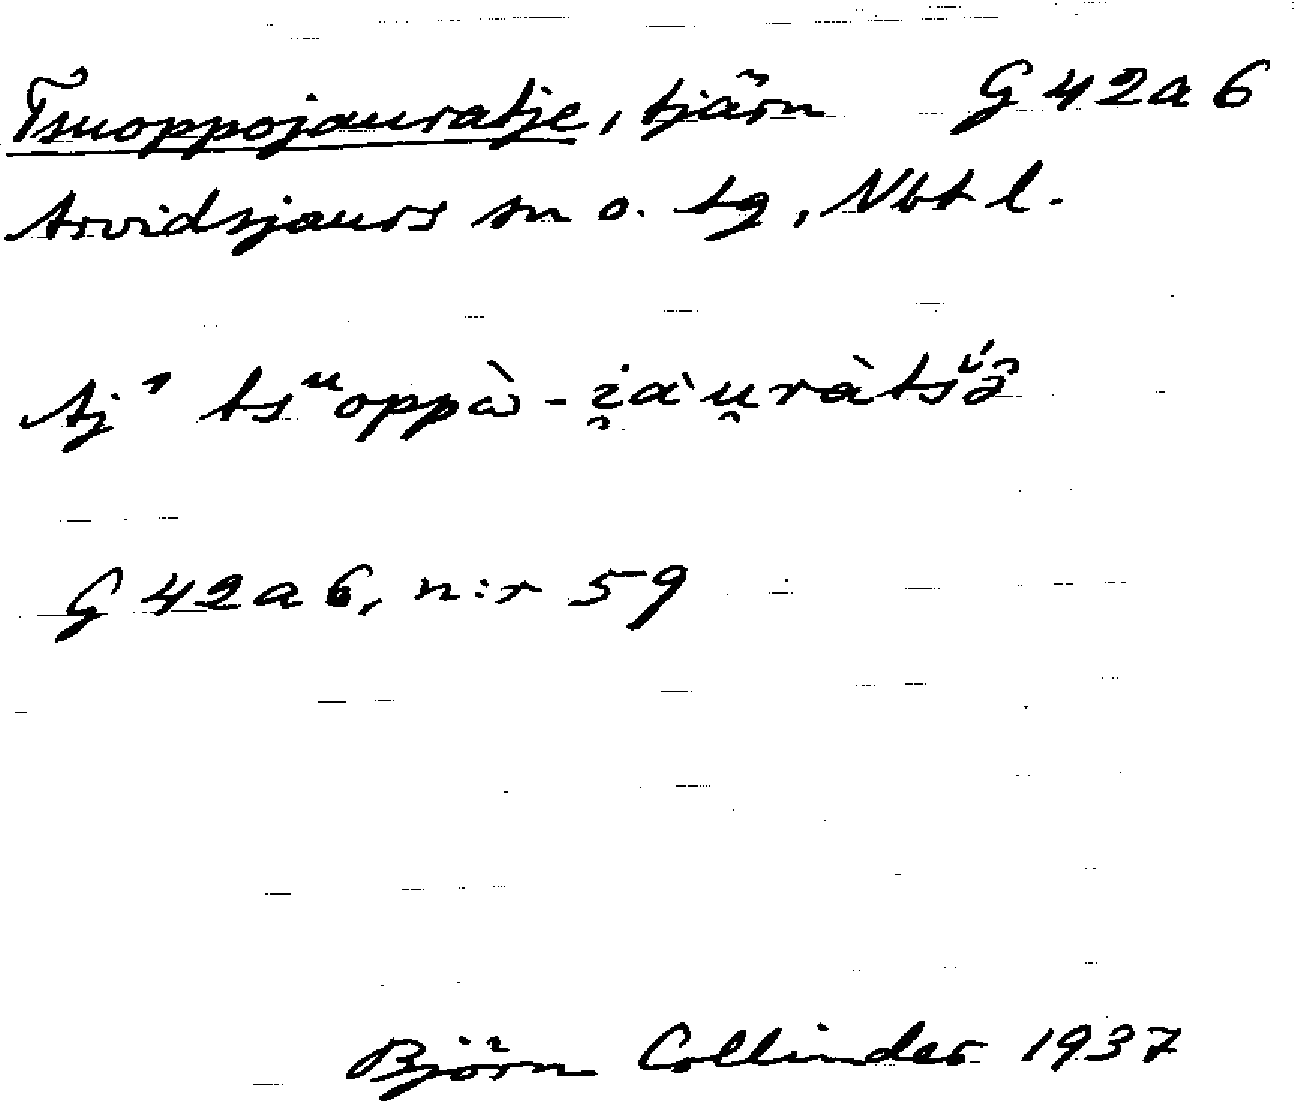 Tsuoppojauratje, tjärn G 42 a 6
Arvidsjaurs sn o. tg, Nbt l.
Aj' tsᵘoppὼ-i̯àu̯ràtśə̑
G 42 a 6, n:r 59
Björn Collinder 1937